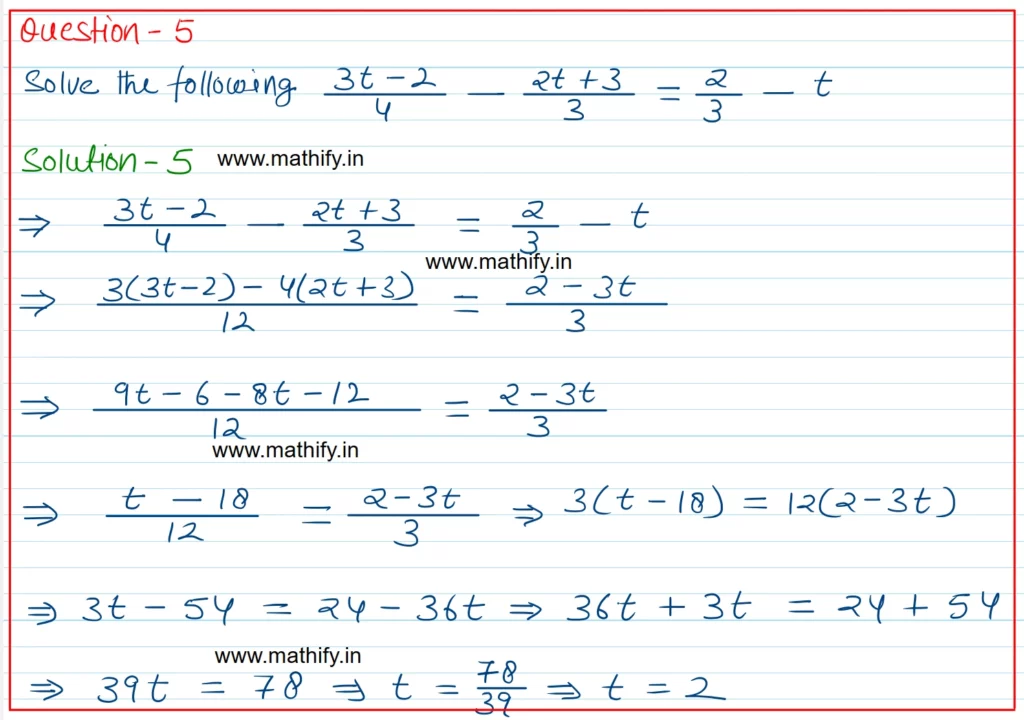 Question - 5
Solve the following (3t - 2)/4 - (2t + 3)/3 = 2/3 - t
Solution - 5 www.mathify.in
⇒ (3t - 2)/4 - (2t + 3)/3 = 2/3 - t
www.mathify.in
⇒ (3(3t - 2) - 4(2t + 3))/12 = (2 - 3t)/3
⇒ (9t - 6 - 8t - 12)/12 = (2 - 3t)/3
www.mathify.in
⇒ (t - 18)/12 = (2 - 3t)/3 ⇒ 3(t - 18) = 12(2 - 3t)
⇒ 3t - 54 = 24 - 36t ⇒ 36t + 3t = 24 + 54
www.mathify.in
⇒ 39t = 78 ⇒ t = 78/39 ⇒ t = 2